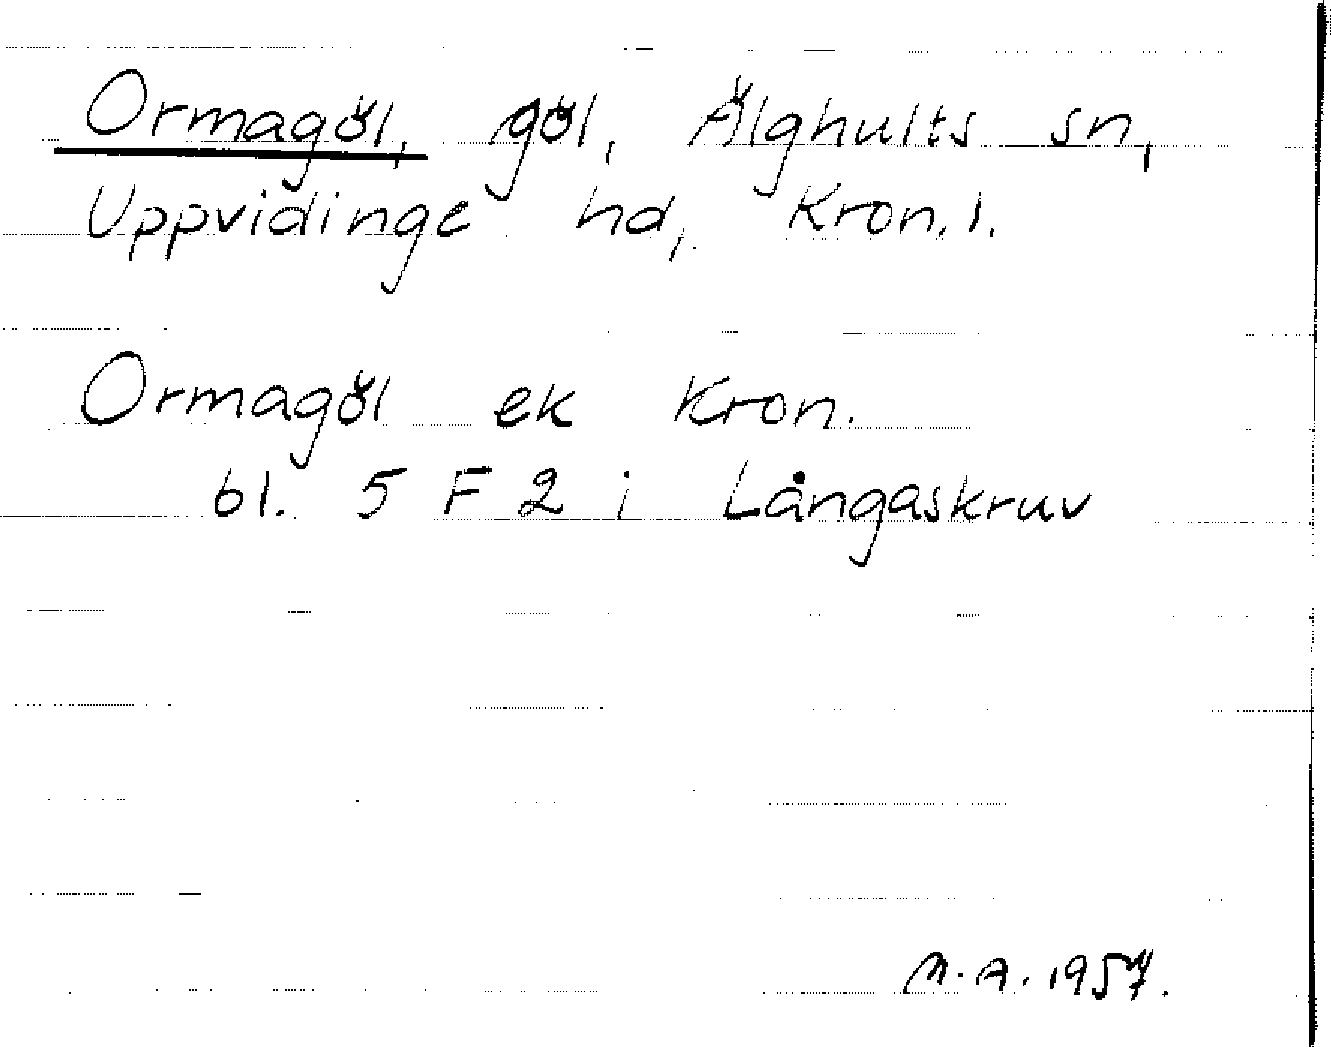 Ormagöl, göl, Älghults sn,
Uppvidinge hd, Kron.l.
Ormagöl ek Kron.
bl. 5 F 2 i Långaskruv
M.A. 1957.